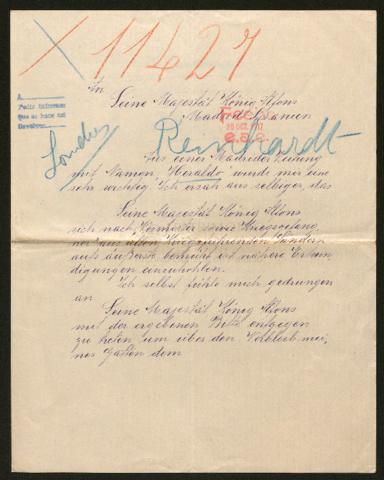 11427
An
Seine Majestät König Alfons
Madrid Spanien
A
Pedir informes
que se hace así
Devolver
Fecha
Londres
Reinhardt
Aus einer Madrider Zeitung
mit Namen, Heraldo, wurde mir eine
sehr wichtig. Ich ersah aus selbiger, das
Seine Majestät König Alfons
sich nach Vermisster sowie Kriegsgefang
ner aus allen kriegführenden Ländern
aufs äußerste bemüht ist nähere Erkun
digungen einzuholen.
Ich selbst fühle mich gedrungen
an
Seine Majestät König Alfons
mit der ergebenen Bitte entgegen
zu treten, um über den Verbleib mei,
nes Gatten dem